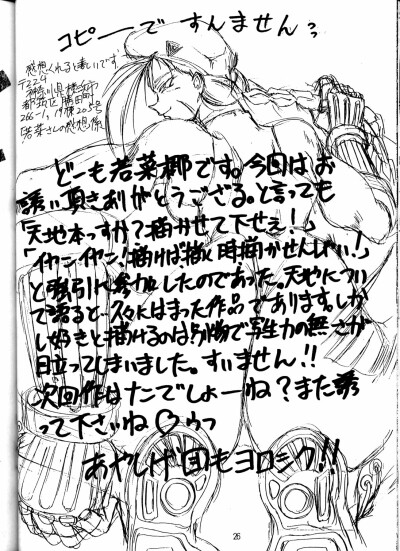 コピーですんませんっ
感想くれると嬉しいです
〒224
神奈川県横浜市
都筑区勝田町
266-1, 19棟205号
若菜さんの感想係
どーも若菜椰です。今回はお
誘い頂きありがとうござる。と言っても
「天地本っすか？描かせて下せぇ！」
「イヤン イヤン！描けば描く時描かせんしゃい！」
と強引に参加したのであった。天地につい
て語ると…久々にはまった作品であります。しか
し好きと描けるのは別物で写生力の無さが
目立ってしまいました。すいません!!
次回作はなにでしょーね？また誘
って下さいね♡
あやしげ団もヨロシク!!
26